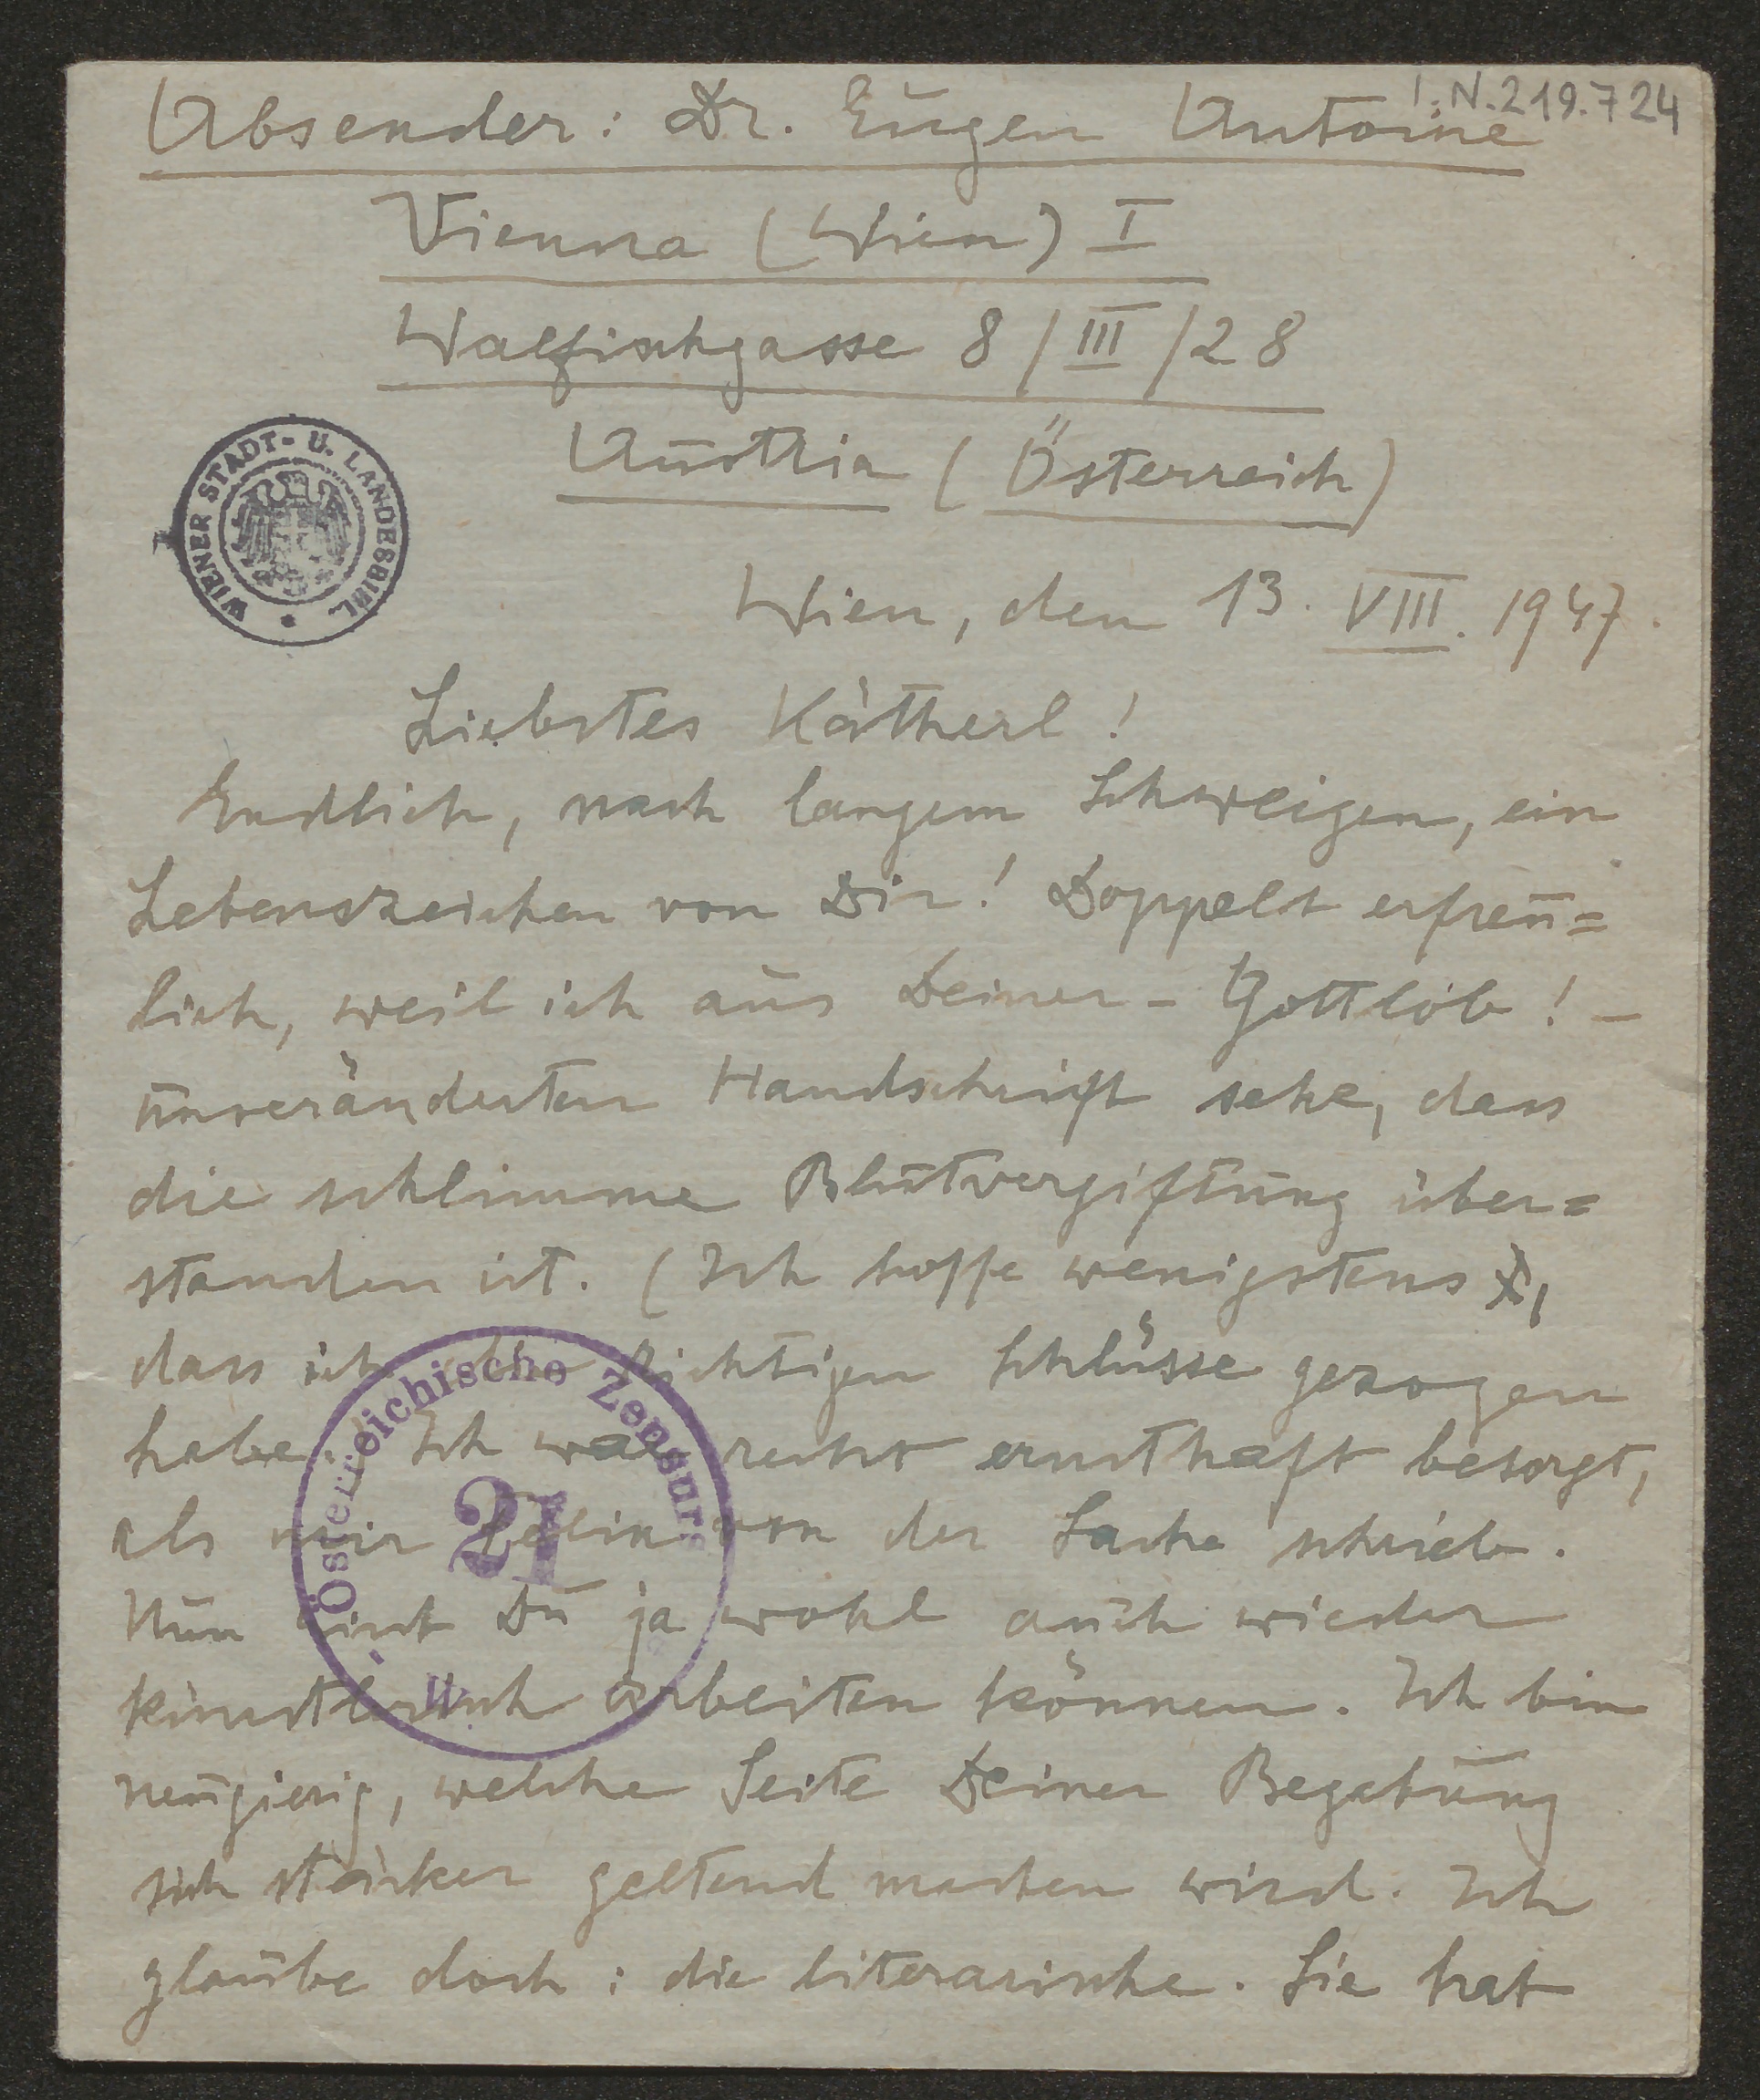 I.N.219.724
Absender: Dr. Eugen Antoine
Vienna (Wien) I
Walfischgasse 8/III/28
Austria (Österreich)
WIENER STADT- U. LANDESBIBL.
Wien, den 13. VIII. 1947.
Liebstes Kätherl!
Endlich, nach langem Schweigen, ein
Lebenszeichen von Dir! Doppelt erfreu=
lich, weil ich aus Deiner - Gottlob! -
unveränderten Handschrift sehe, dass
die schlimme Blutvergiftung über=
standen ist. (Ich hoffe wenigstens,
dass ich die richtigen Schlüsse gezogen
habe. Ich war recht ernsthaft besorgt,
als mir von der Sache schrieb.
Nun wirst Du ja wohl auch wieder
künstlerisch arbeiten können. Ich bin
neugierig, welche Seite Deiner Begabung
sich stärker geltend machen wird. Ich
glaube doch: die literarische. Sie hat
Österreichische Zensurs
21